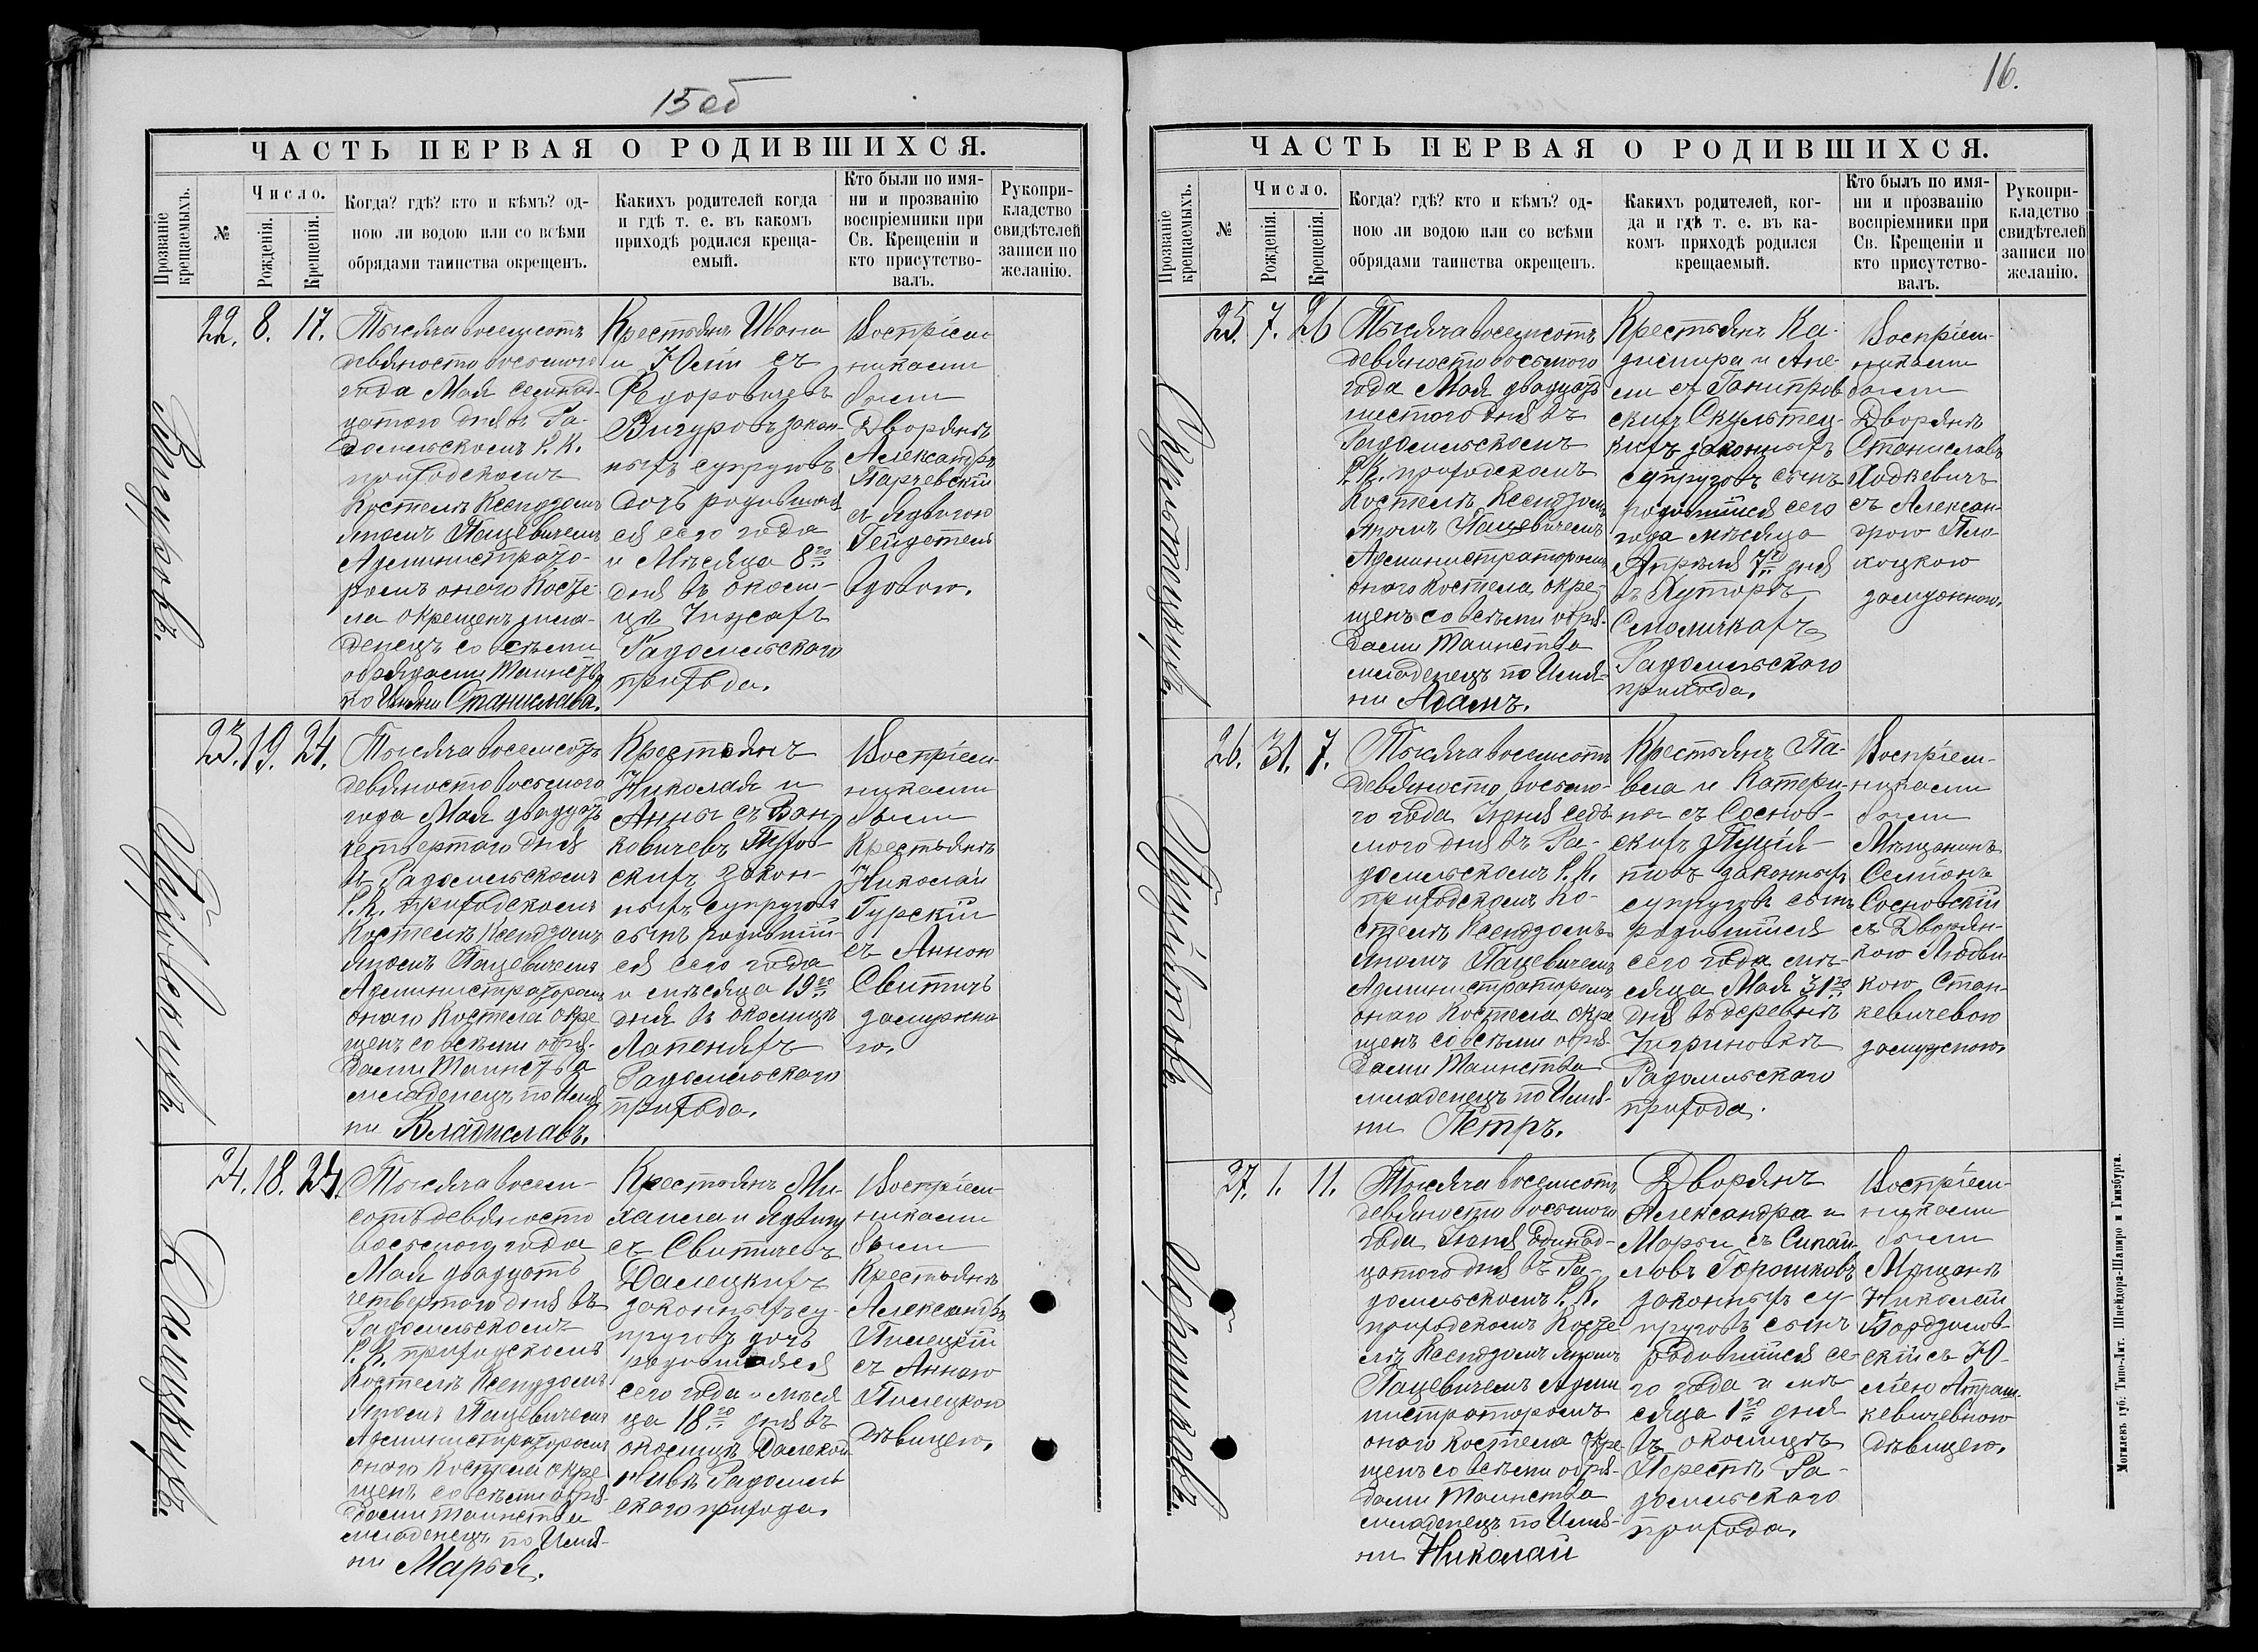 15 об
ЧАСТЬ ПЕРВАЯ О РОДИВШИХСЯ.
Прозваніе крещаемыхъ.
№
Число.
Рожденія.
Крещенія.
Когда? гдѣ? кто и кѣмъ? од-
ною ли водою или со всѣми
обрядами таинства окрещенъ.
Какихъ родителей когда
и гдѣ т. е. въ какомъ
приходѣ родился креща-
емый.
Кто были по имя-
ни и прозванію
воспріемники при
Св. Крещеніи и
кто присутство-
валъ.
Рукопри-
кладство
свидѣтелей
записи по
желанію.
Вигуровъ.
22. 8. 17.
Тысяча восемьсотъ
девяносто восьмого
года Мая семнад-
цатого дня въ Ра-
домысльскомъ Р. К.
приходскомъ
Костелѣ Ксендзомъ
Яномъ Пацевичемъ
Администрато-
ромъ оного Косте-
ла окрещенъ мла-
денецъ со всѣми
обрядами Таинства
по Имяни Станислава.
Крестьянъ Ивана
и Юліи съ
Федоровичевъ
Вигуровъ закон-
ныхъ супруговъ
дочь родившая
ся сего года
и Мѣсяца 8го
дня въ околи-
цѣ Чижахъ
Радомысльского
прихода.
Воспріем-
никами
были
Дворянъ
Александръ
Парчевскій
съ Ядвигою
вдовою.
23. 19. 24.
Тысяча восемьсотъ
девяносто восьмого
года Мая двадцать
четвертого дня
въ Радомысльскомъ
Р. К. приходскомъ
Костелѣ Ксендзомъ
Яномъ Пацевичемъ
Администраторомъ
оного Костела окре
щенъ со всѣми обря-
дами Таинства
младенецъ по Имя
ни Владиславъ.
Крестьянъ
Николая и
Анны съ Ван
ковичевъ
скихъ закон-
ныхъ супруговъ
сынъ родившій-
ся сего года
и мѣсяца 19го
дня въ околицѣ
Лапеняхъ
Радомысльского
прихода.
Воспріем-
никами
были
Крестьянъ
Николай
Гурскій
съ Анною
Свитичъ
замужню
ю.
Далецкихъ.
24. 18. 24.
Тысяча восемь-
сотъ девяносто
восьмого года
Мая двадцать
четвертого дня въ
Радомысльскомъ
Р. К. приходскомъ
Костелѣ Ксендзомъ
Яномъ Пацевичемъ
Администраторомъ
оного Костела окре
щенъ со всѣми обря-
дами Таинства
младенецъ по Имя-
ни Марья.
Крестьянъ Ми-
хаила и Ядвиги
съ Свитичевъ
Далецкихъ
законныхъ су-
пруговъ дочь
родившаяся
сего года и мѣся
ца 18го дня въ
околицѣ Далекой
Нивѣ Радомысль
ского прихода.
Воспріем-
никами
были
Крестьянъ
Александръ
Пилецкій
съ Анною
Пилецкою
дѣвицею.
16.
ЧАСТЬ ПЕРВАЯ О РОДИВШИХСЯ.
Прозваніе крещаемыхъ.
№
Число.
Рожденія.
Крещенія.
Когда? гдѣ? кто и кѣмъ? од-
ною ли водою или со всѣми
обрядами таинства окрещенъ.
Какихъ родителей, ког-
да и гдѣ т. е. въ ка-
комъ приходѣ родился
крещаемый.
Кто былъ по имя-
ни и прозванію
воспріемники при
Св. Крещеніи и
кто присутство-
валъ.
Рукопри-
кладство
свидѣтелей
записи по
желанію.
25. 7. 26
Тысяча восемьсотъ
девяносто восьмого
года Мая двадцать
шестого дня въ
Радомысльскомъ
Р. К. приходскомъ
Костелѣ Ксендзомъ
Яномъ Пацевичемъ
Администраторомъ
оного Костела окре-
щенъ со всѣми обря-
дами Таинства
младенецъ по Имя-
ни Адамъ.
Крестьянъ Ка-
зимира и Ане-
ли съ
законныхъ
супруговъ сынъ
родившійся сего
года мѣсяца
Апрѣля 7го дня
въ Хуторѣ
Смоличкахъ
Радомысльского
прихода.
Воспріем-
никами
были
Дворянъ
Станиславъ
Ходкевичъ
съ Алексан-
дрою
замужнею.
26. 31. 7.
Тысяча восемьсотъ
девяносто восьмо-
го года Іюня седь
мого дня въ Ра-
домысльскомъ Р. К.
приходскомъ Ко-
стелѣ Ксендзомъ
Яномъ Пацевичемъ
Администраторомъ
оного Костела окре
щенъ со всѣми обря-
дами Таинства
младенецъ по Имя-
ни Петръ.
Крестьянъ Па-
вла и Катери-
ны съ Соснов-
скихъ
законныхъ
супруговъ сынъ
родившійся
сего года мѣ-
сяца Мая 31го
дня въ деревнѣ
Чигриновкѣ
Радомысльского
прихода.
Воспріем-
никами
были
Мѣщанинъ
Семіонъ
Сосновскій
съ Дворян-
кою Людви
кою Стан-
кевичевою
замужнею.
Горошковъ.
27. 1. 11.
Тысяча восемьсотъ
девяносто восьмого
года Іюня одинад-
цатого дня въ Ра-
домысльскомъ Р. К.
приходскомъ Косте
лѣ Ксендзомъ Яномъ
Пацевичемъ Адми
нистраторомъ
оного Костела окре-
щенъ со всѣми обря-
дами Таинства
младенецъ по Имя-
ни Николай
Дворянъ
Александра и
Марьи съ
Горошковъ
законныхъ су-
пруговъ сынъ
родившійся се-
го года и мѣ
сяца 1го дня
въ околицѣ
Ра-
домысльского
прихода.
Воспріем-
никами
были
Мѣщанъ
Николай
съ Ю-
ліею
кевичевною
дѣвицею.
Могилевъ губ. Типо-Лит. Шнейдора-Шапиро и Гинзбурга.